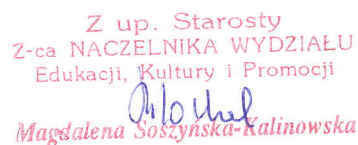 Z up. Starosty
Z-ca NACZELNIKA WYDZIAŁU
Edukacji, Kultury i Promocji
Magdalena Soszyńska-Kalinowska